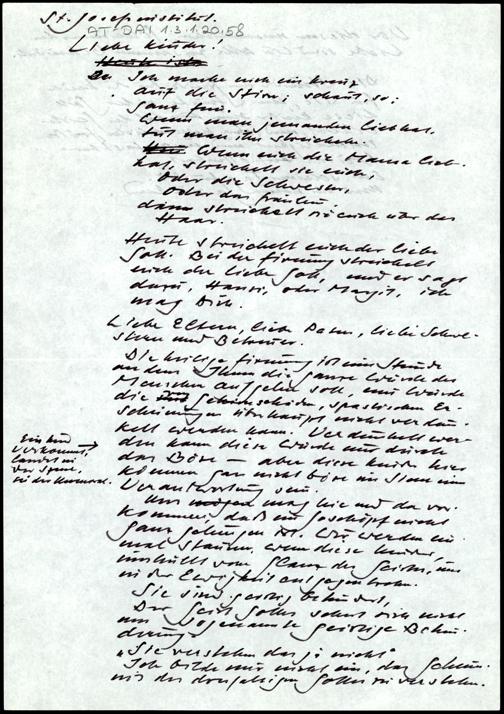 St. Josefsinstitut.
AT-DAI 1.3.1.20.58
Liebe Kinder!
Heute ists
Ich mache euch ein Kreuz
auf die Stirn; schaut, so;
ganz fein.
Wenn man jemanden liebhat,
tut man ihn streicheln.
Wenn euch die Mama lieb
hat, streichelt sie euch,
oder die Schwester,
oder das Fräulein,
dann streichelt sie euch über das
Haar.
Heute streichelt euch der liebe
Gott. Bei der Firmung streichelt
euch der liebe Gott und er sagt
dazu, Hansi, oder Margit, ich
mag Dich.
Liebe Eltern, liebe Paten, liebe Schwe-
stern und Betreuer.
Die heilige Firmung ist eine Stunde
an dem Ihnen die ganze Würde des
Menschen aufgehn soll, eine Würde
die Gehirnschäden, spastischen Er-
scheinungen überhaupt nicht verdun-
kelt werden kann. Verdunkelt wer-
den kann diese Würde nur durch
das Böse – aber diese Kinder hier
können gar nicht böse im Sinn von
Verantwortung sein.
Uns mag hie und da vor-
kommen, daß ein Geschöpf nicht
ganz gelungen ist. Wir werden ein-
mal staunen, wenn diese Kinder,
umhüllt vom Glanz des Geistes, uns
in der Ewigkeit entgegentreten.
Sie sind geistig behindert,
Der Geist Gottes schert sich nicht
um sogenannte geistige Behin-
derung.
"Sie verstehen das ja nicht"
Ich bilde mir nicht ein, das Geheim-
nis des dreifaltigen Gottes zu verstehen.
Ein
verkommt,
landet in
der Spree,